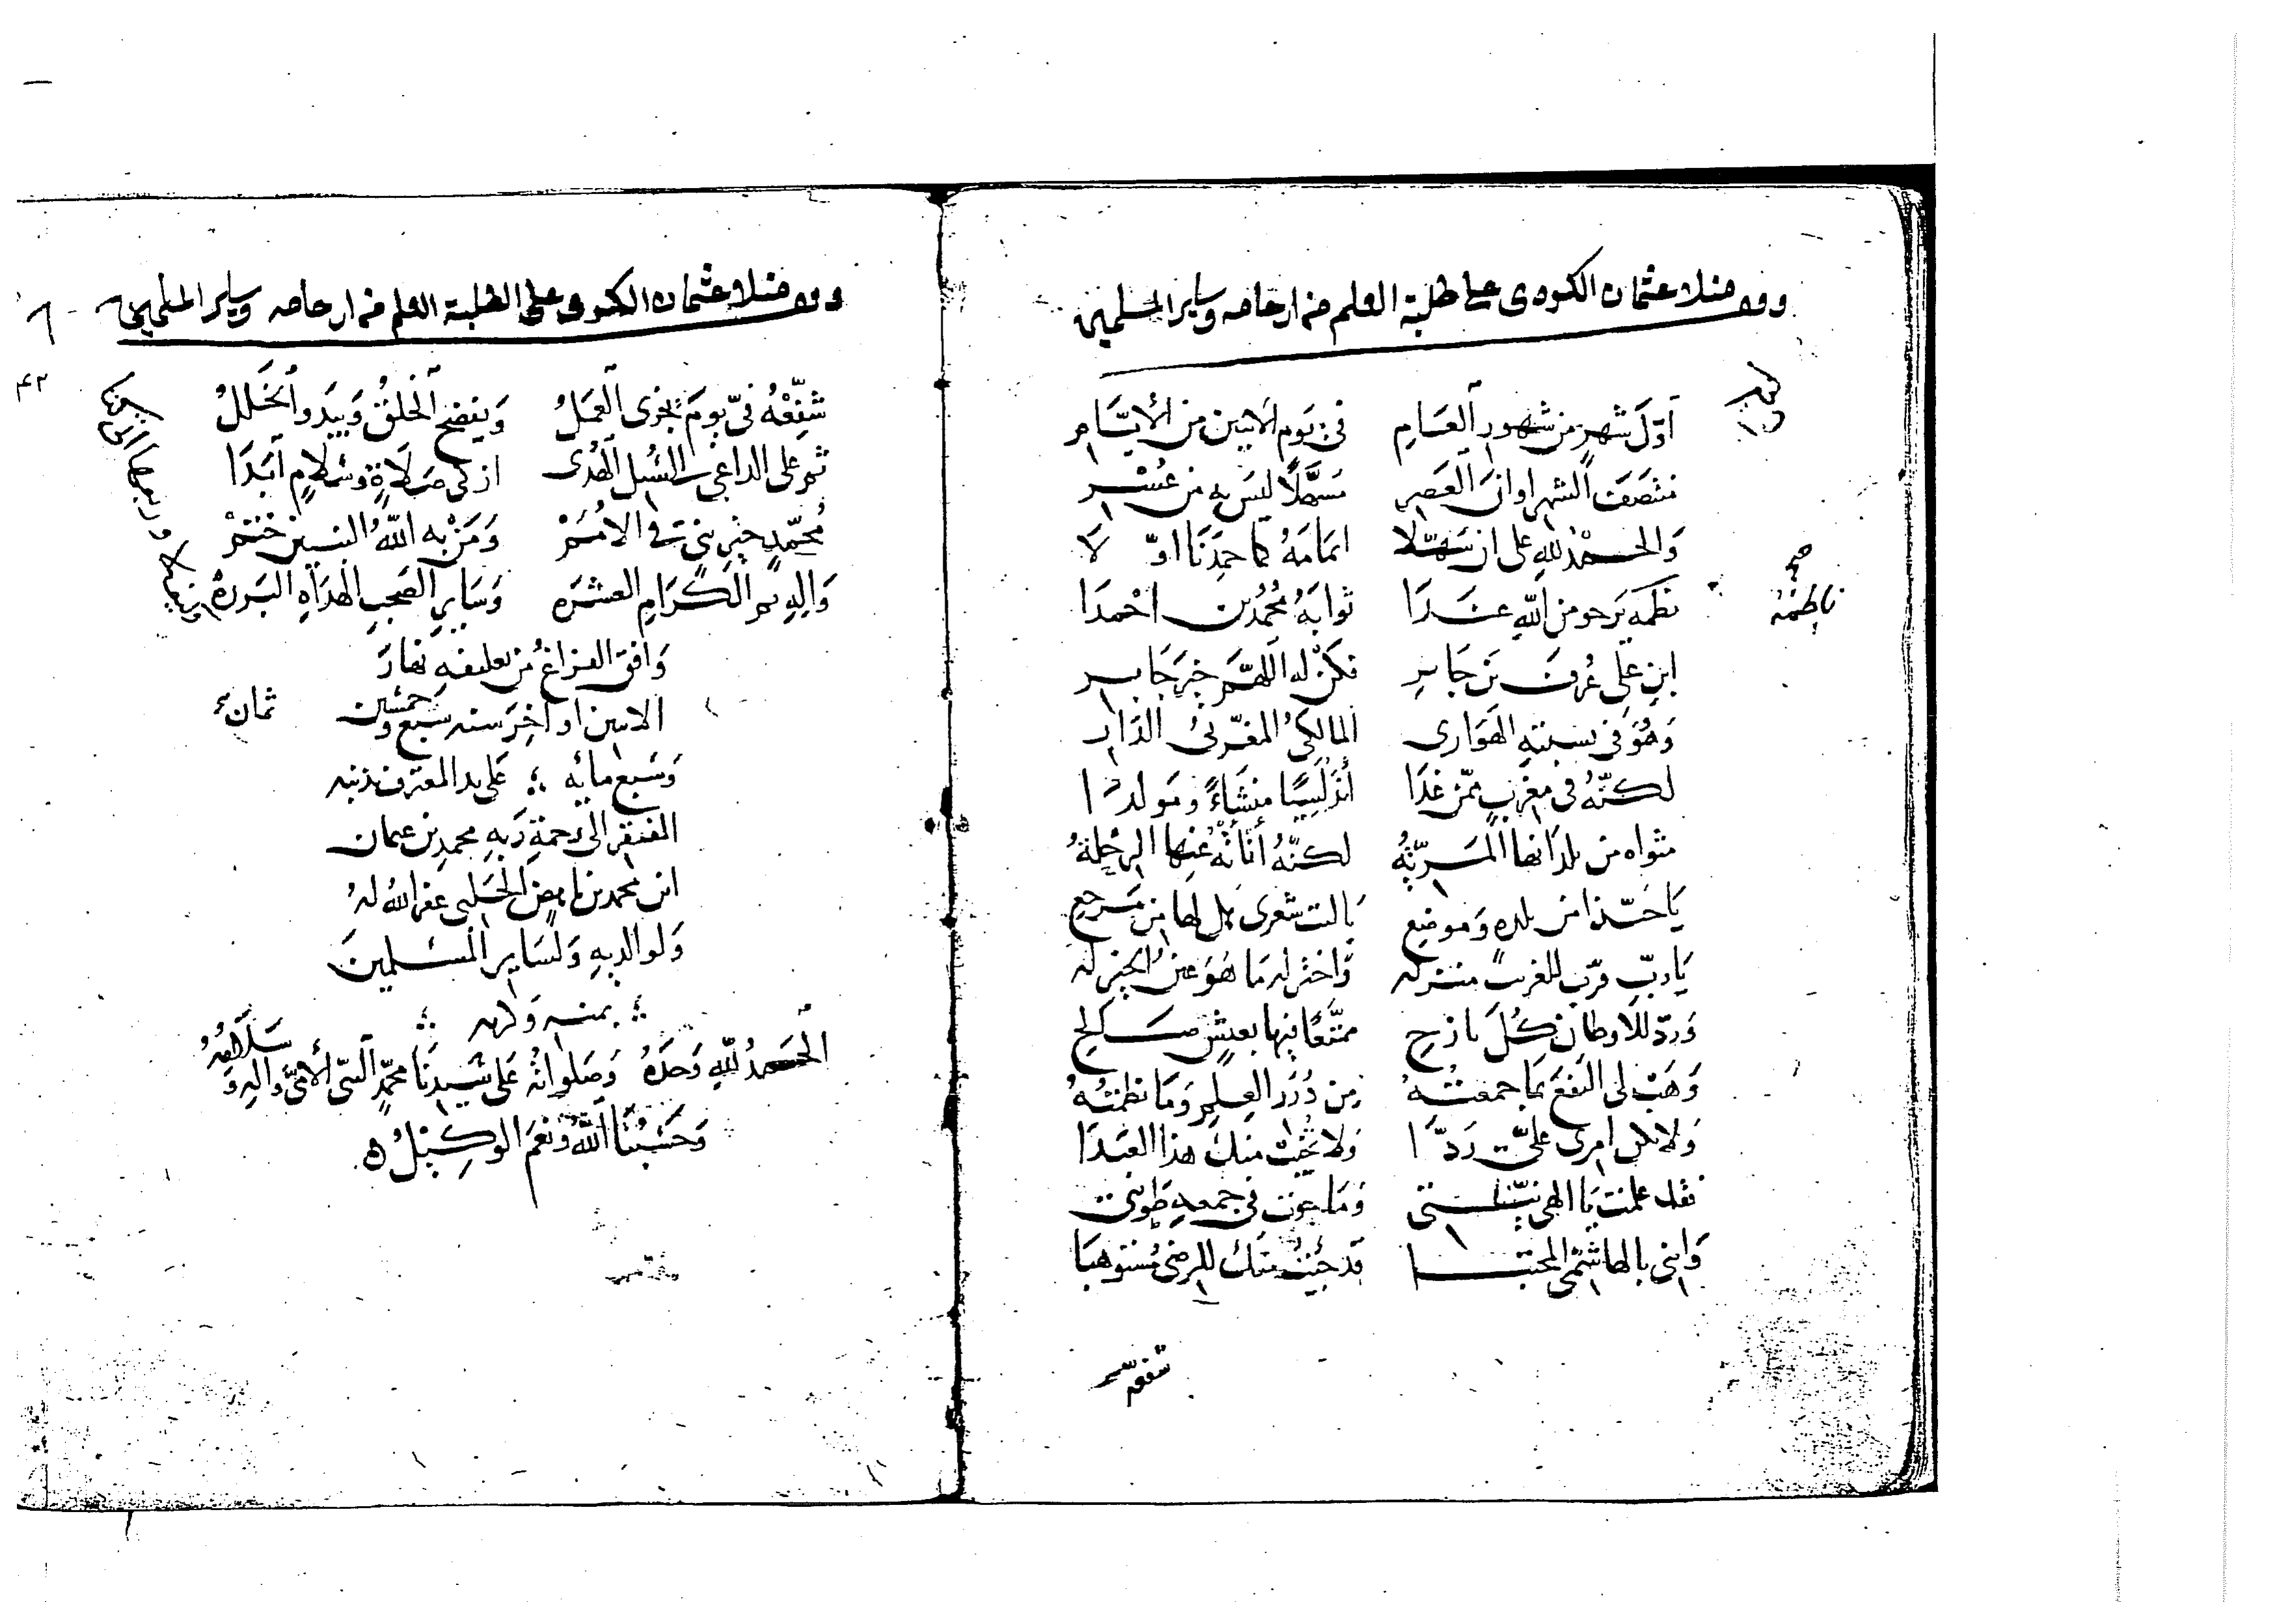 وقف منلا عثمان الكردي على طلبة العلم من ارحامه وساير المسلمين
اوّل شهرٍ من شهور العام في يوم الاثنين من الأيّام
منتصف الشهر اوان العصر مسهّلاً ليس به من عُسْر
والحمد لله على ان سهّلا اتمامه كما حمدنا اوّلا
ناظمه
نظمه يرجو من الله غدا ثوابه محمد بن احمدا
ابن علي عُرف بن جابر فكن له اللهم خير جابر
وهو في نسبته الهواري المالكي المغربي الدار
لكنّه في مغرب ممّن غدا أندلسيًا منشاءً ومولدا
مثواه من بلدانها المريّه لكنّه أنأته عنها الرحلةُ
يا حبّذا من بلده وموضع يا ليت شعري هل لها من مرجع
يا ربّ قرّب للغريب منزله واختر له ما هو عين الخير له
وردّ للاوطان كل نازح ممتّعًا فيها بعيش صالح
وهب لي النفع بما جمعته من درر العلم وما نظمته
ولا يكن امري عليّ ردّا ولا تخيّب منك هذا العبدا
فقد علمت يا الهي نيّتي وما حوت في جمعه طويتي
وانني بالهاشمي المجتبا قد جئت منك للرضى مستوهبا
شفعه
وقف منلا عثمان الكردي على الطلبة العلم من ارحامه وساير المسلمين
٤٣
شفّعه في يوم يجزى العمل ويفضح الخلق ويبدو الخلل
ثم على الداعي لسبل الهدى ازكى صلاة وسلام أبدا
محمّد خير نبي في الامم ومن به الله النبيين ختم
واله ثم الكرام العشره وساير الصحب الهداه البررة
وافق الفراغ من تعليقه نهار
الاثنين اواخر سنه سبع وخمسين
وسبع مائه على يد المعترف بذنبه
المفتقر الى رحمة ربه محمد بن عثمان
ابن محمد بن الحلبي غفر الله له
ولوالديه ولساير المسلمين
بمنه وكرمه
الحمد لله وحده وصلواته على سيدنا محمّد النبي الأمّي واله وسلامه
وحسبنا الله ونعم الوكيل